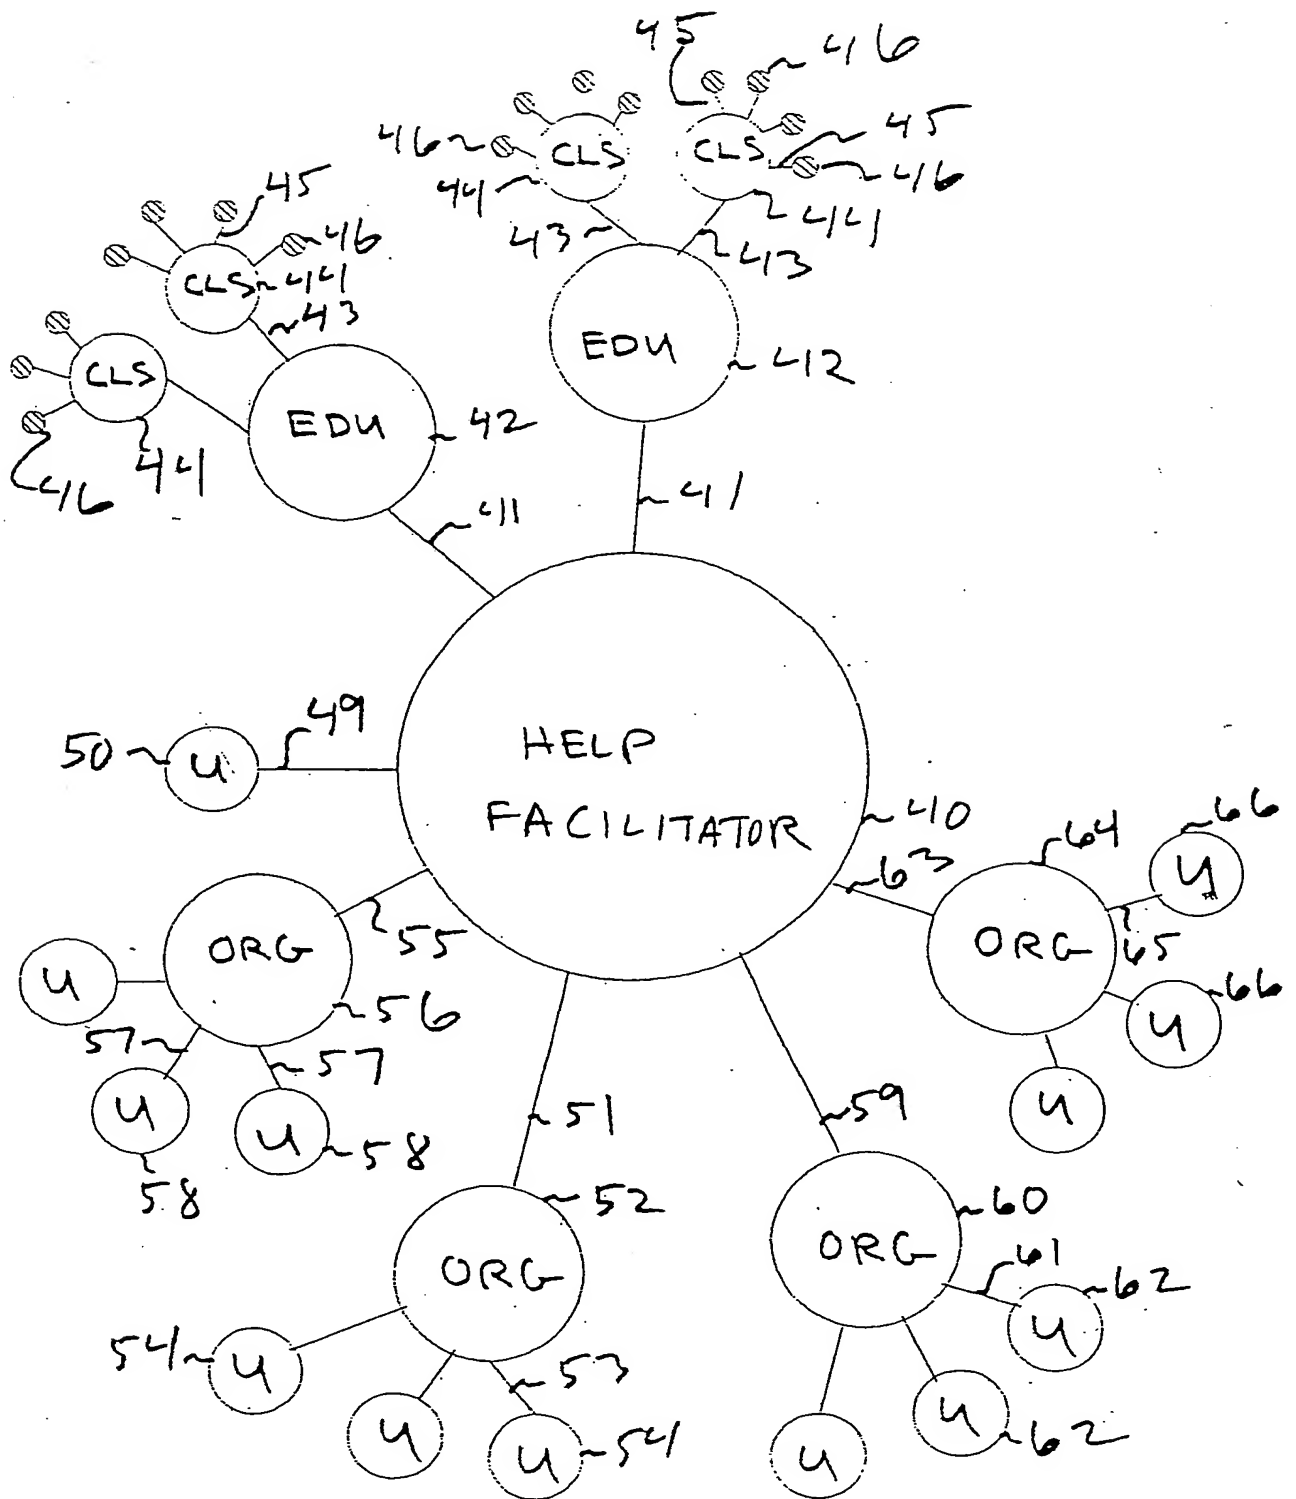 45
46
46
CLS
CLS
45
46
44
44
45
43
43
46
CLS
44
43
EDU
42
CLS
EDU
42
46
44
41
41
49
50
U
HELP
FACILITATOR
40
66
64
63
U
ORG
55
ORG
65
U
56
66
57
57
U
U
U
U
58
58
51
59
52
60
ORG
ORG
61
62
54
U
53
U
U
U
54
U
U
62